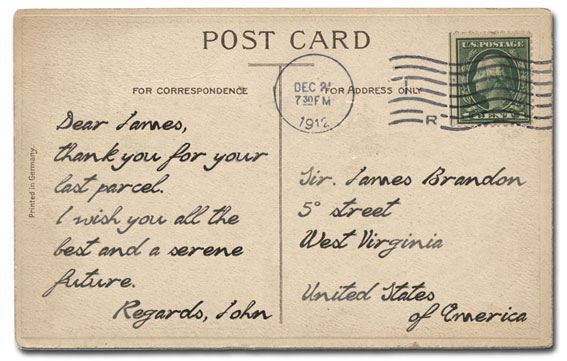 POST CARD
FOR CORRESPONDENCE
FOR ADDRESS ONLY
DEC 21
7 30 PM
1912
R
U.S. POSTAGE
Printed in Germany.
Dear James,
thank you for your
last parcel.
I wish you all the
best and a serene
future.
Regards, John
Sir. James Brandon
5° street
West Virginia
United States
of America